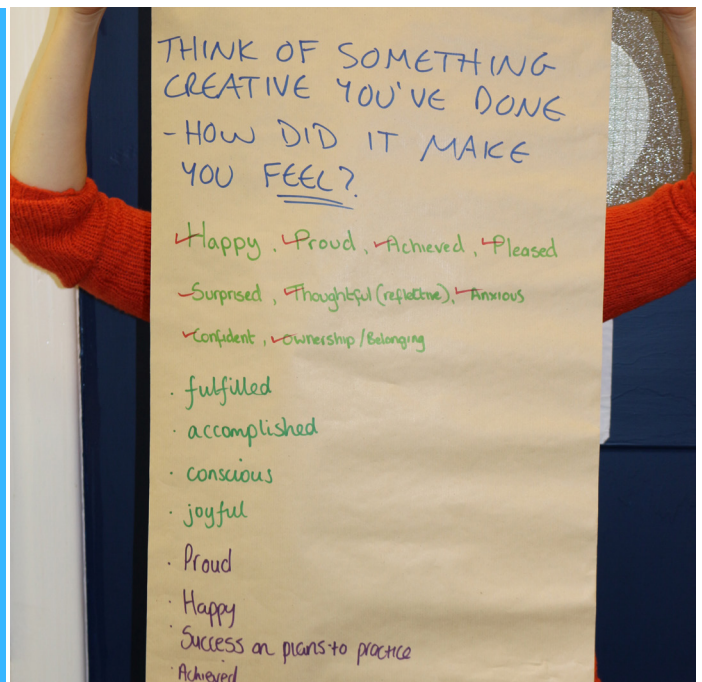 THINK OF SOMETHING
CREATIVE YOU'VE DONE
- HOW DID IT MAKE
YOU FEEL?
Happy, Proud, Achieved, Pleased
Surprised, Thoughtful (reflective), Anxious
Confident, Ownership/Belonging
· fulfilled
· accomplished
· conscious
· joyful
· Proud
· Happy
· Success on plans to practice
· Achieved